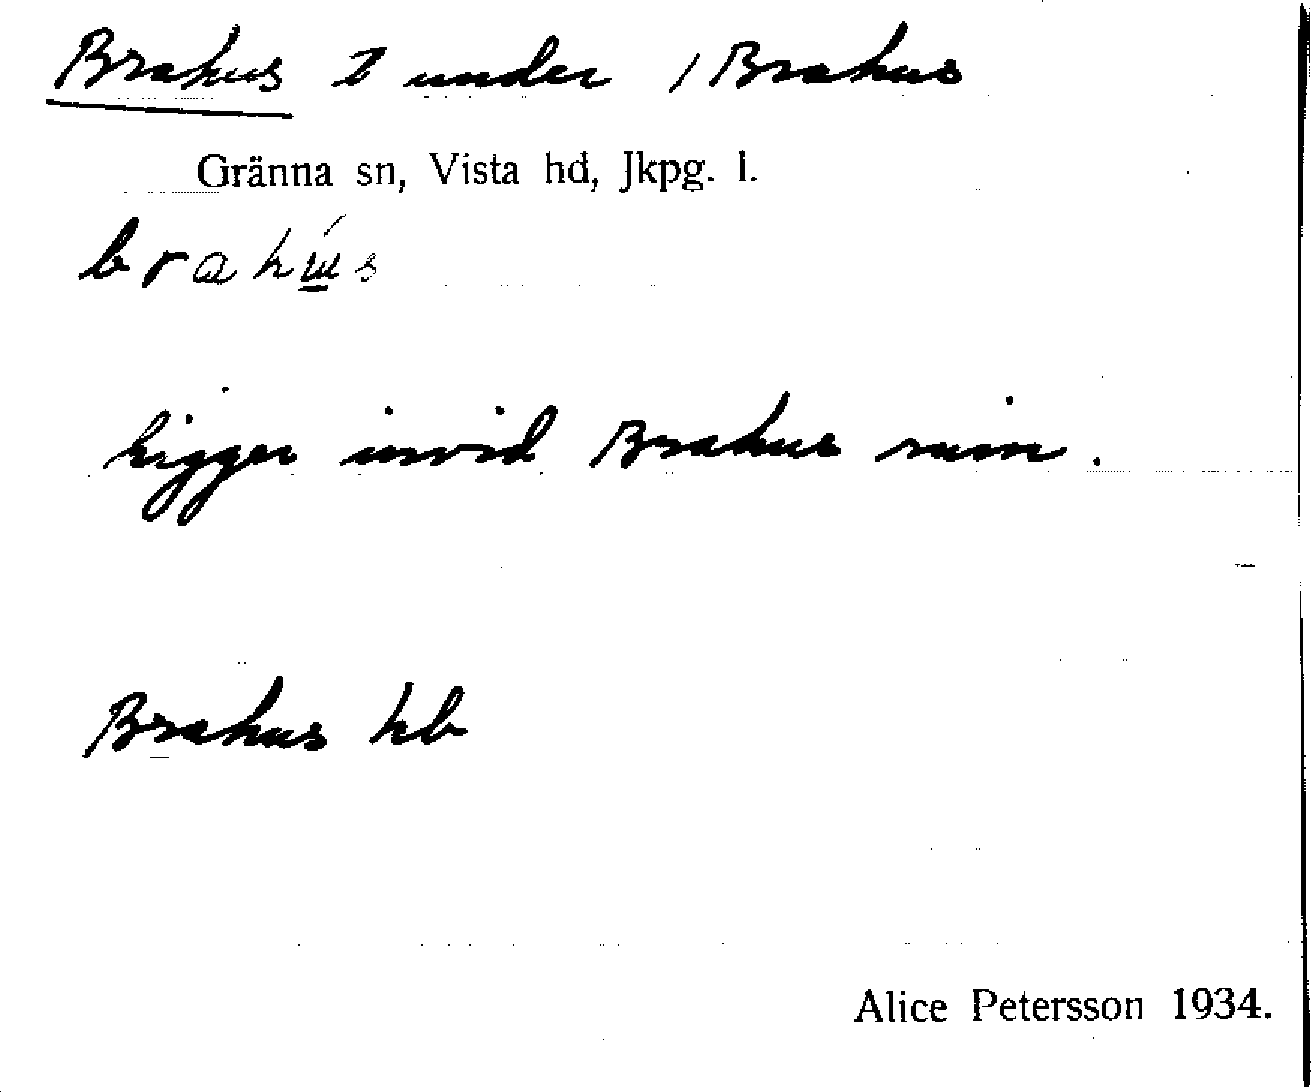 Brahus t under 1 Brahus
Gränna sn, Vista hd, Jkpg. l.
brahú̲s
ligger invid Brahus ruin.
Brahus hb
Alice Petersson 1934.